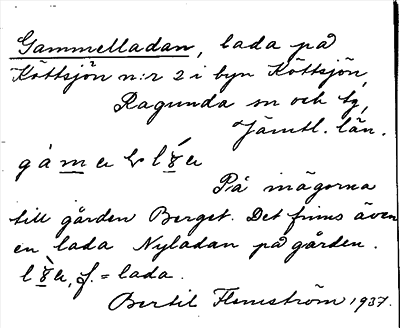 Gammelladan, lada på
Köttsjön n:r 2 i byn Köttsjön,
Ragunda sn och tg,
Jämtl. län.
På inägorna
till gården Berget. Det finns även
en lada Nyladan på gården.
f. = lada.
Bertil Flemström 1937.